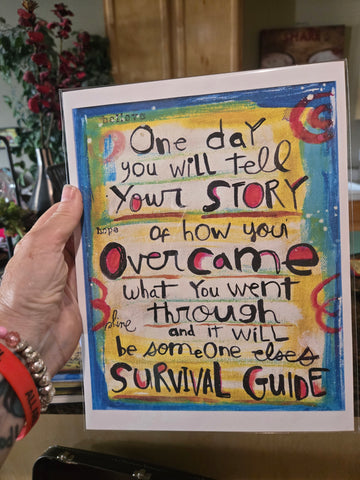 SHARE
believe
One day
you will tell
Your STORY
hope
of how you
Overcame
what You went
through
shine
and it will
be someone elses
SURVIVAL GUIDE